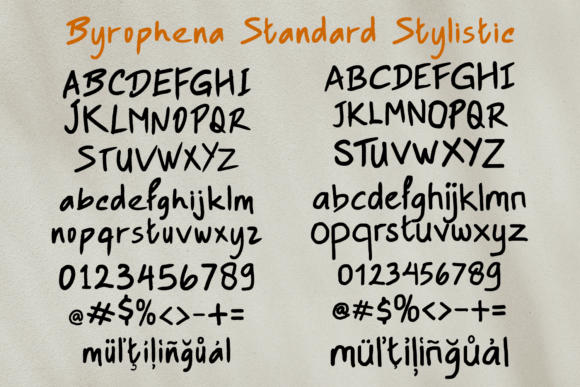 Byrophena Standard Stylistic
ABCDEFGHI
JKLMNOPQR
STUVWXYZ
abcdefghijklm
nopqrstuvwxyz
0123456789
@#$%<>-+=
müľţiļiñğůál
ABCDEFGHI
JKLMNOPQR
STUVWXYZ
abcdefghijklmn
opqrstuvwxyz
0123456789
@#$%<>-+=
müľţiļiñğůál